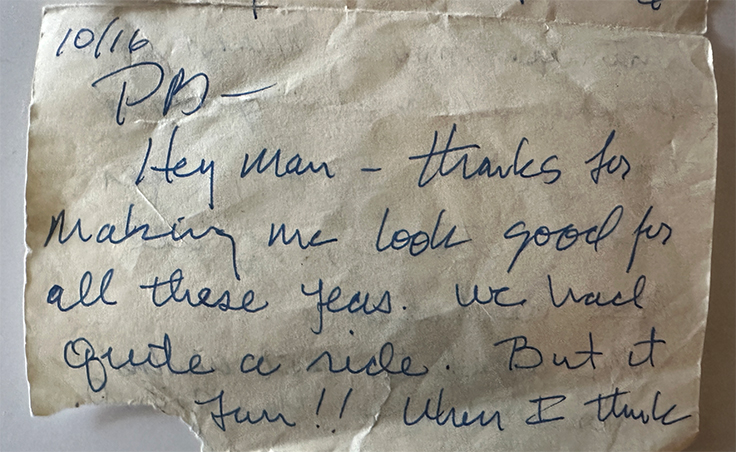 10/16
PD —
Hey man – thanks for
Making me look good for
all these yeas. We had
Quite a ride. But it
fun!! When I think